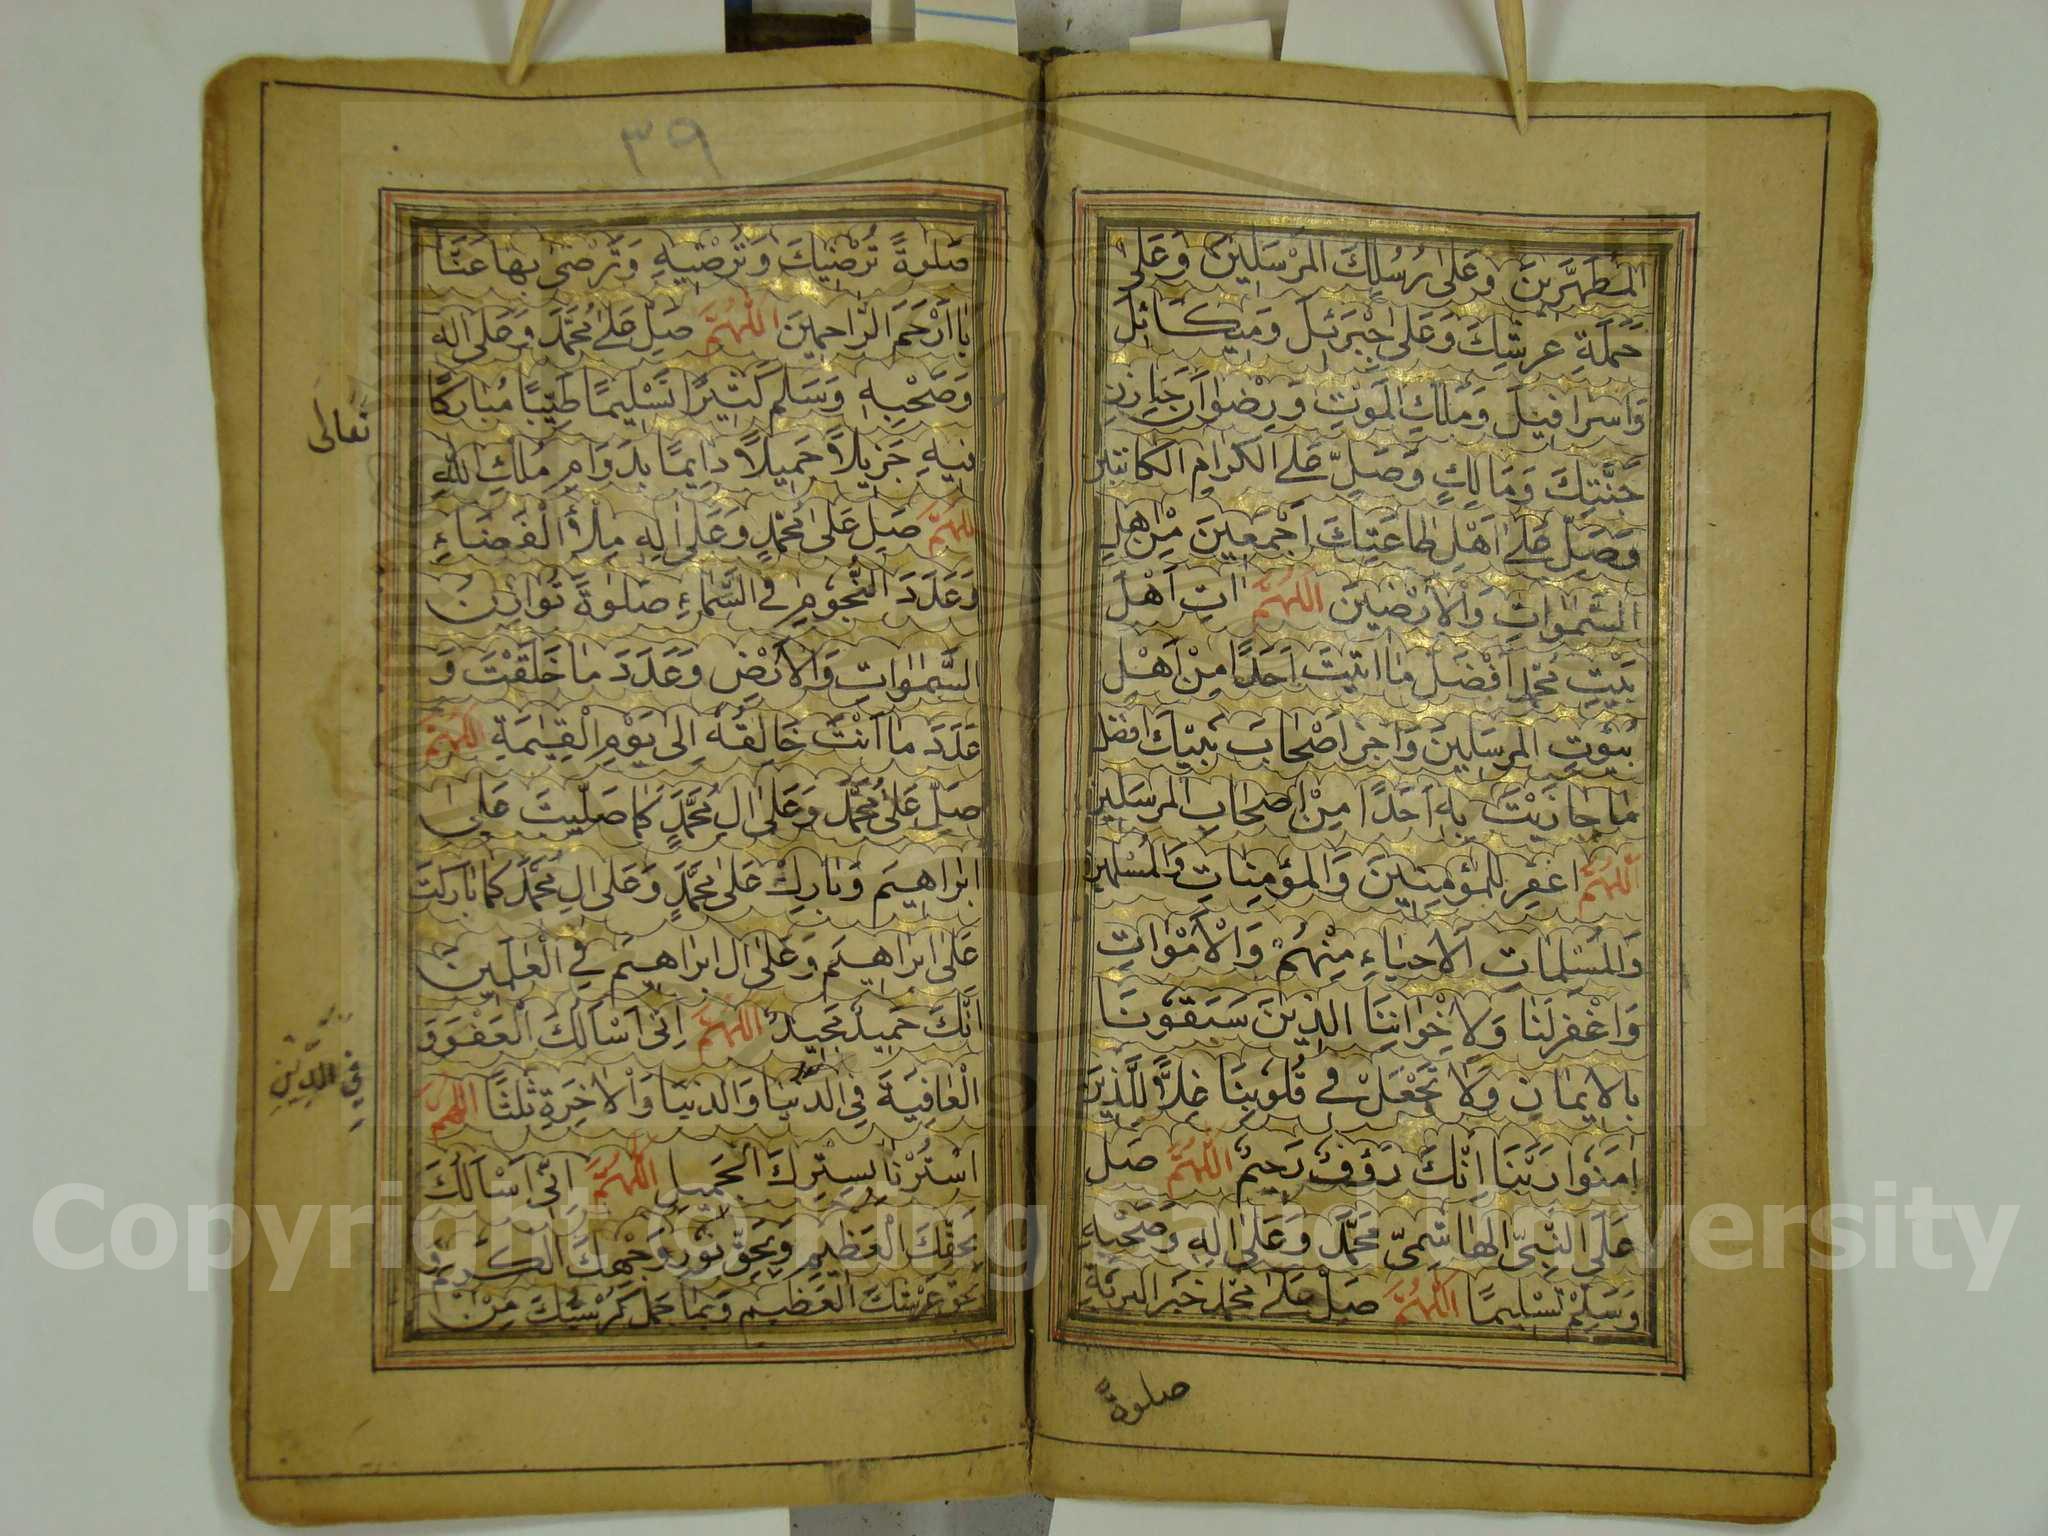 المطهرين وعلى رسلك المرسلين وعلى
حملة عرشك وعلى جبرئل وميكائل
واسرافيل وملك الموت ورضوان خازن
جنتك ومالك وصل على الكرام الكاتبين
وصل على اهل طاعتك اجمعين من اهل
السموات والارضين اللهم ات اهل
بيت محمد افضل ما اتيت احدا من اهل
بيوت المرسلين واجز اصحاب نبيك افضل
ما جازيت به احدا من اصحاب المرسلين
اللهم اغفر للمؤمنين والمؤمنات والمسلمين
والمسلمات الاحياء منهم والاموات
واغفر لنا ولاخواننا الذين سبقونا
بالايمان ولا تجعل في قلوبنا غلا للذين
امنوا ربنا انك رؤف رحيم اللهم صل
على النبي الهاشمي محمد وعلى اله وصحبه
وسلم تسليما اللهم صل على محمد خير البرية
صلوة
٣٩
صلوة ترضيك وترضيه وترضى بها عنا
يا ارحم الراحمين اللهم صل على محمد وعلى اله
وصحبه وسلم كثيرا تسليما طيبا مباركا
فيه جزيلا جميلا دايما بدوام ملك الله
تعالى
اللهم صل على محمد وعلى اله ملأ الفضاء
وعدد النجوم في السماء صلوة توازن
السموات والارض وعدد ما خلقت و
عدد ما انت خالقه الى يوم القيمة اللهم
صل على محمد وعلى ال محمد كما صليت على
ابراهيم وبارك على محمد وعلى ال محمد كما باركت
على ابراهيم وعلى ال ابراهيم في العلمين
انك حميد مجيد اللهم انى اسالك العفو و
العافية في الدنيا والدنيا والاخرة ثلثا اللهم
في الدين
استرنا بسترك الجميل اللهم انى اسالك
بحقك العظيم وبحق نور وجهك الكريم و
بحق عرشك العظيم وبما حمل كرسيك من
Copyright © King Saud University